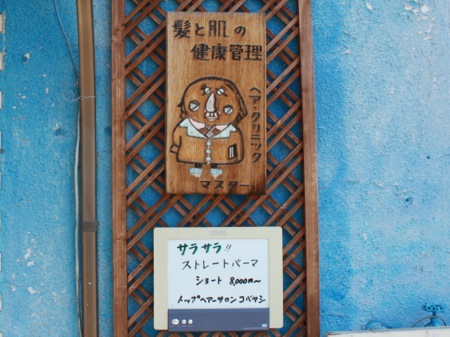 髪と肌の
健康管理
ヘア・クリニック
マスター
サラサラ!!
ストレートパーマ
ショート 8,000円〜
トップヘアーサロン コバヤシ